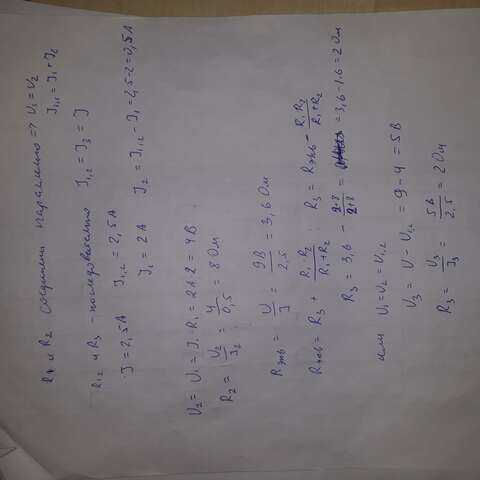 R₁ и R₂ соединены параллельно => U₁ = U₂
J₁,₂ = J₁ + J₂
R₁₂ и R₃ - последовательно J₁,₂ = J₃ = J
J = 2,5 A J₁,₂ = 2,5 A
J₁ = 2 A J₂ = J₁,₂ - J₁ = 2,5 - 2 = 0,5 A
U₂ = U₁ = J₁ · R₁ = 2 A · 2 = 4 В
R₂ = U₂/J₂ = 4/0,5 = 8 Ом
Rэкв = U/J = 9В/2,5 = 3,6 Ом
Rэкв = R₃ + R₁·R₂/R₁+R₂ ; R₃ = Rэкв - R₁·R₂/R₁+R₂
R₃ = 3,6 - 2·8/2+8 = = 3,6 - 1,6 = 2 Ом
или U₁ = U₂ = U₁,₂
U₃ = U - U₁,₂ = 9 - 4 = 5 В
R₃ = U₃/J₃ = 5В/2,5 = 2 Ом